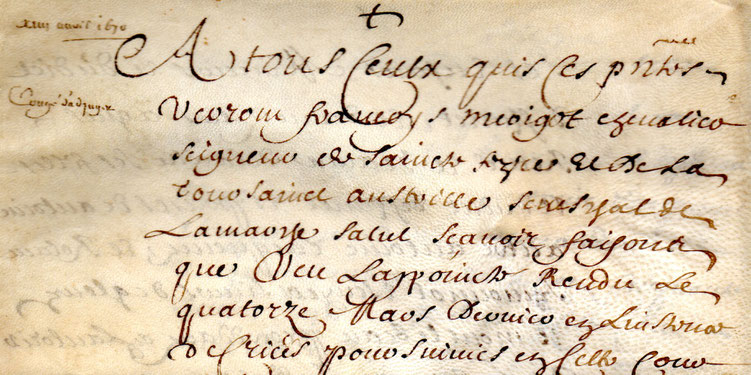 avril 1670
A tous Ceulx quis Ces pntes
Veoront francoys meoigot chevalier
seigneur de saincte et De La
Tour sainct austrille seneschal de
Lamarche salut scavoir faisons
que Veu Lappoincte Rendu Le
quatorze Mars Dernier en Linstance
De Criées poursuivies en Cette Cour